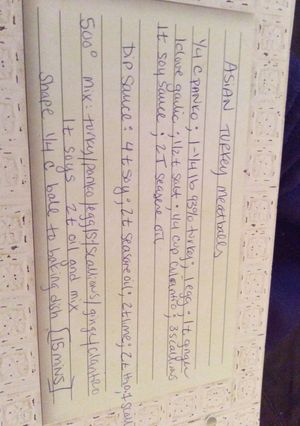 ASIAN TURKEY meatballs
1/4 C PANKO; 1-1/4 lb 93% turkey; 1 egg; 1t ginger
1 clove garlic; 1/2 t salt; 1/4 cup cilantro; 3 scallions
1t soy sauce; 2T sesame oil
DIP Sauce: 4t soy; 2t sesame oil; 2t lime; 2t
500° mix: turkey/panko/egg/S/Scallions/ginger/cilantro
1t soys 2t oil and mix
Shape 1/4 C balls to baking dish 15 mins